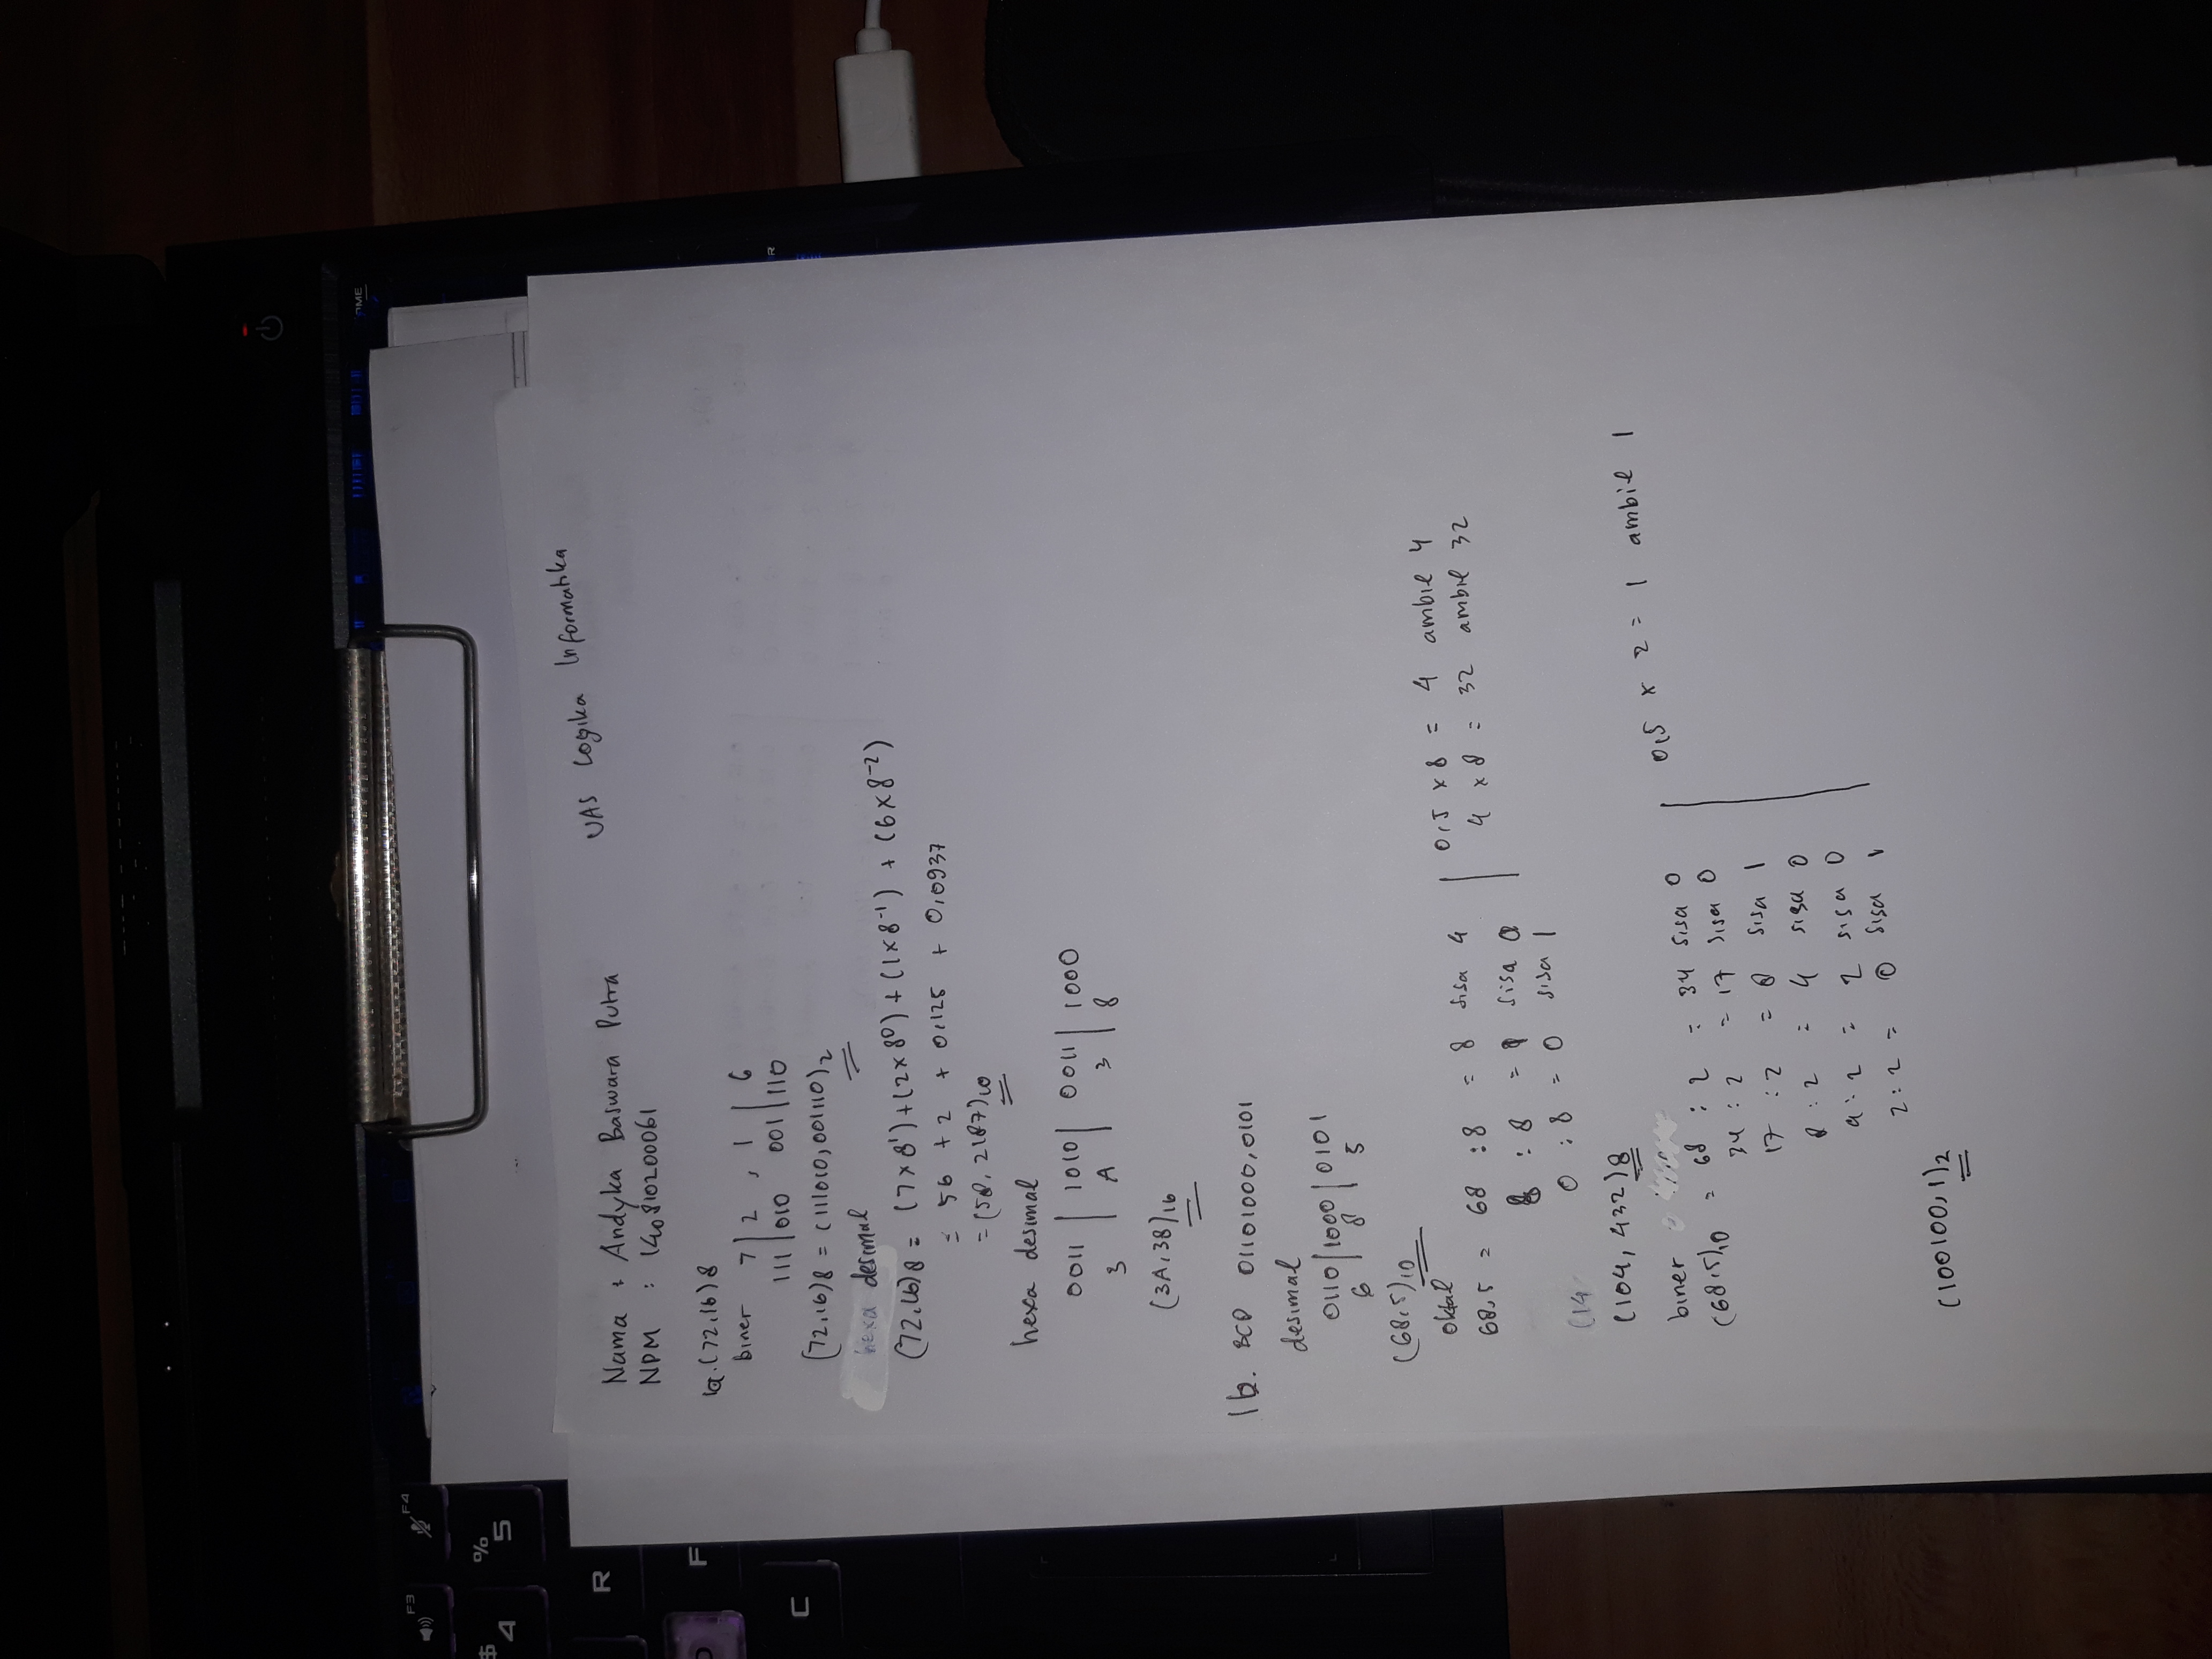 F3
F4
$
4
%
5
R
F
C
OME
R
UAS Logika Informatika
Nama : Andyka Baswara Putra
NPM : 140810200061
1a. (72,16)8
biner 7 | 2 , 1 | 6
111 | 010 001 | 110
(72,16)8 = (111010,001110)2
hexa desimal
(72,16)8 = (7 x 8¹) + (2 x 8⁰) + (1 x 8⁻¹) + (6 x 8⁻²)
= 56 + 2 + 0,125 + 0,0937
= (58,2187)10
hexa desimal
0011 | 1010 | 0011 | 1000
3 A 3 8
(3A,38)16
1b. BCD 01101000,0101
desimal
0110 | 1000 | 0101
6 8 5
(68,5)10
oktal
68,5 = 68 : 8 = 8 sisa 4 | 0,5 x 8 = 4 ambil 4
8 : 8 = 1 sisa 0 | 4 x 8 = 32 ambil 32
0 : 8 = 0 sisa 1
(14
(104,432)8
biner
(68,5)10 = 68 : 2 = 34 sisa 0 | 0,5 x 2 = 1 ambil 1
34 : 2 = 17 sisa 0
17 : 2 = 8 sisa 1
8 : 2 = 4 sisa 0
4 : 2 = 2 sisa 0
2 : 2 = 0 sisa 1
(100100,1)2